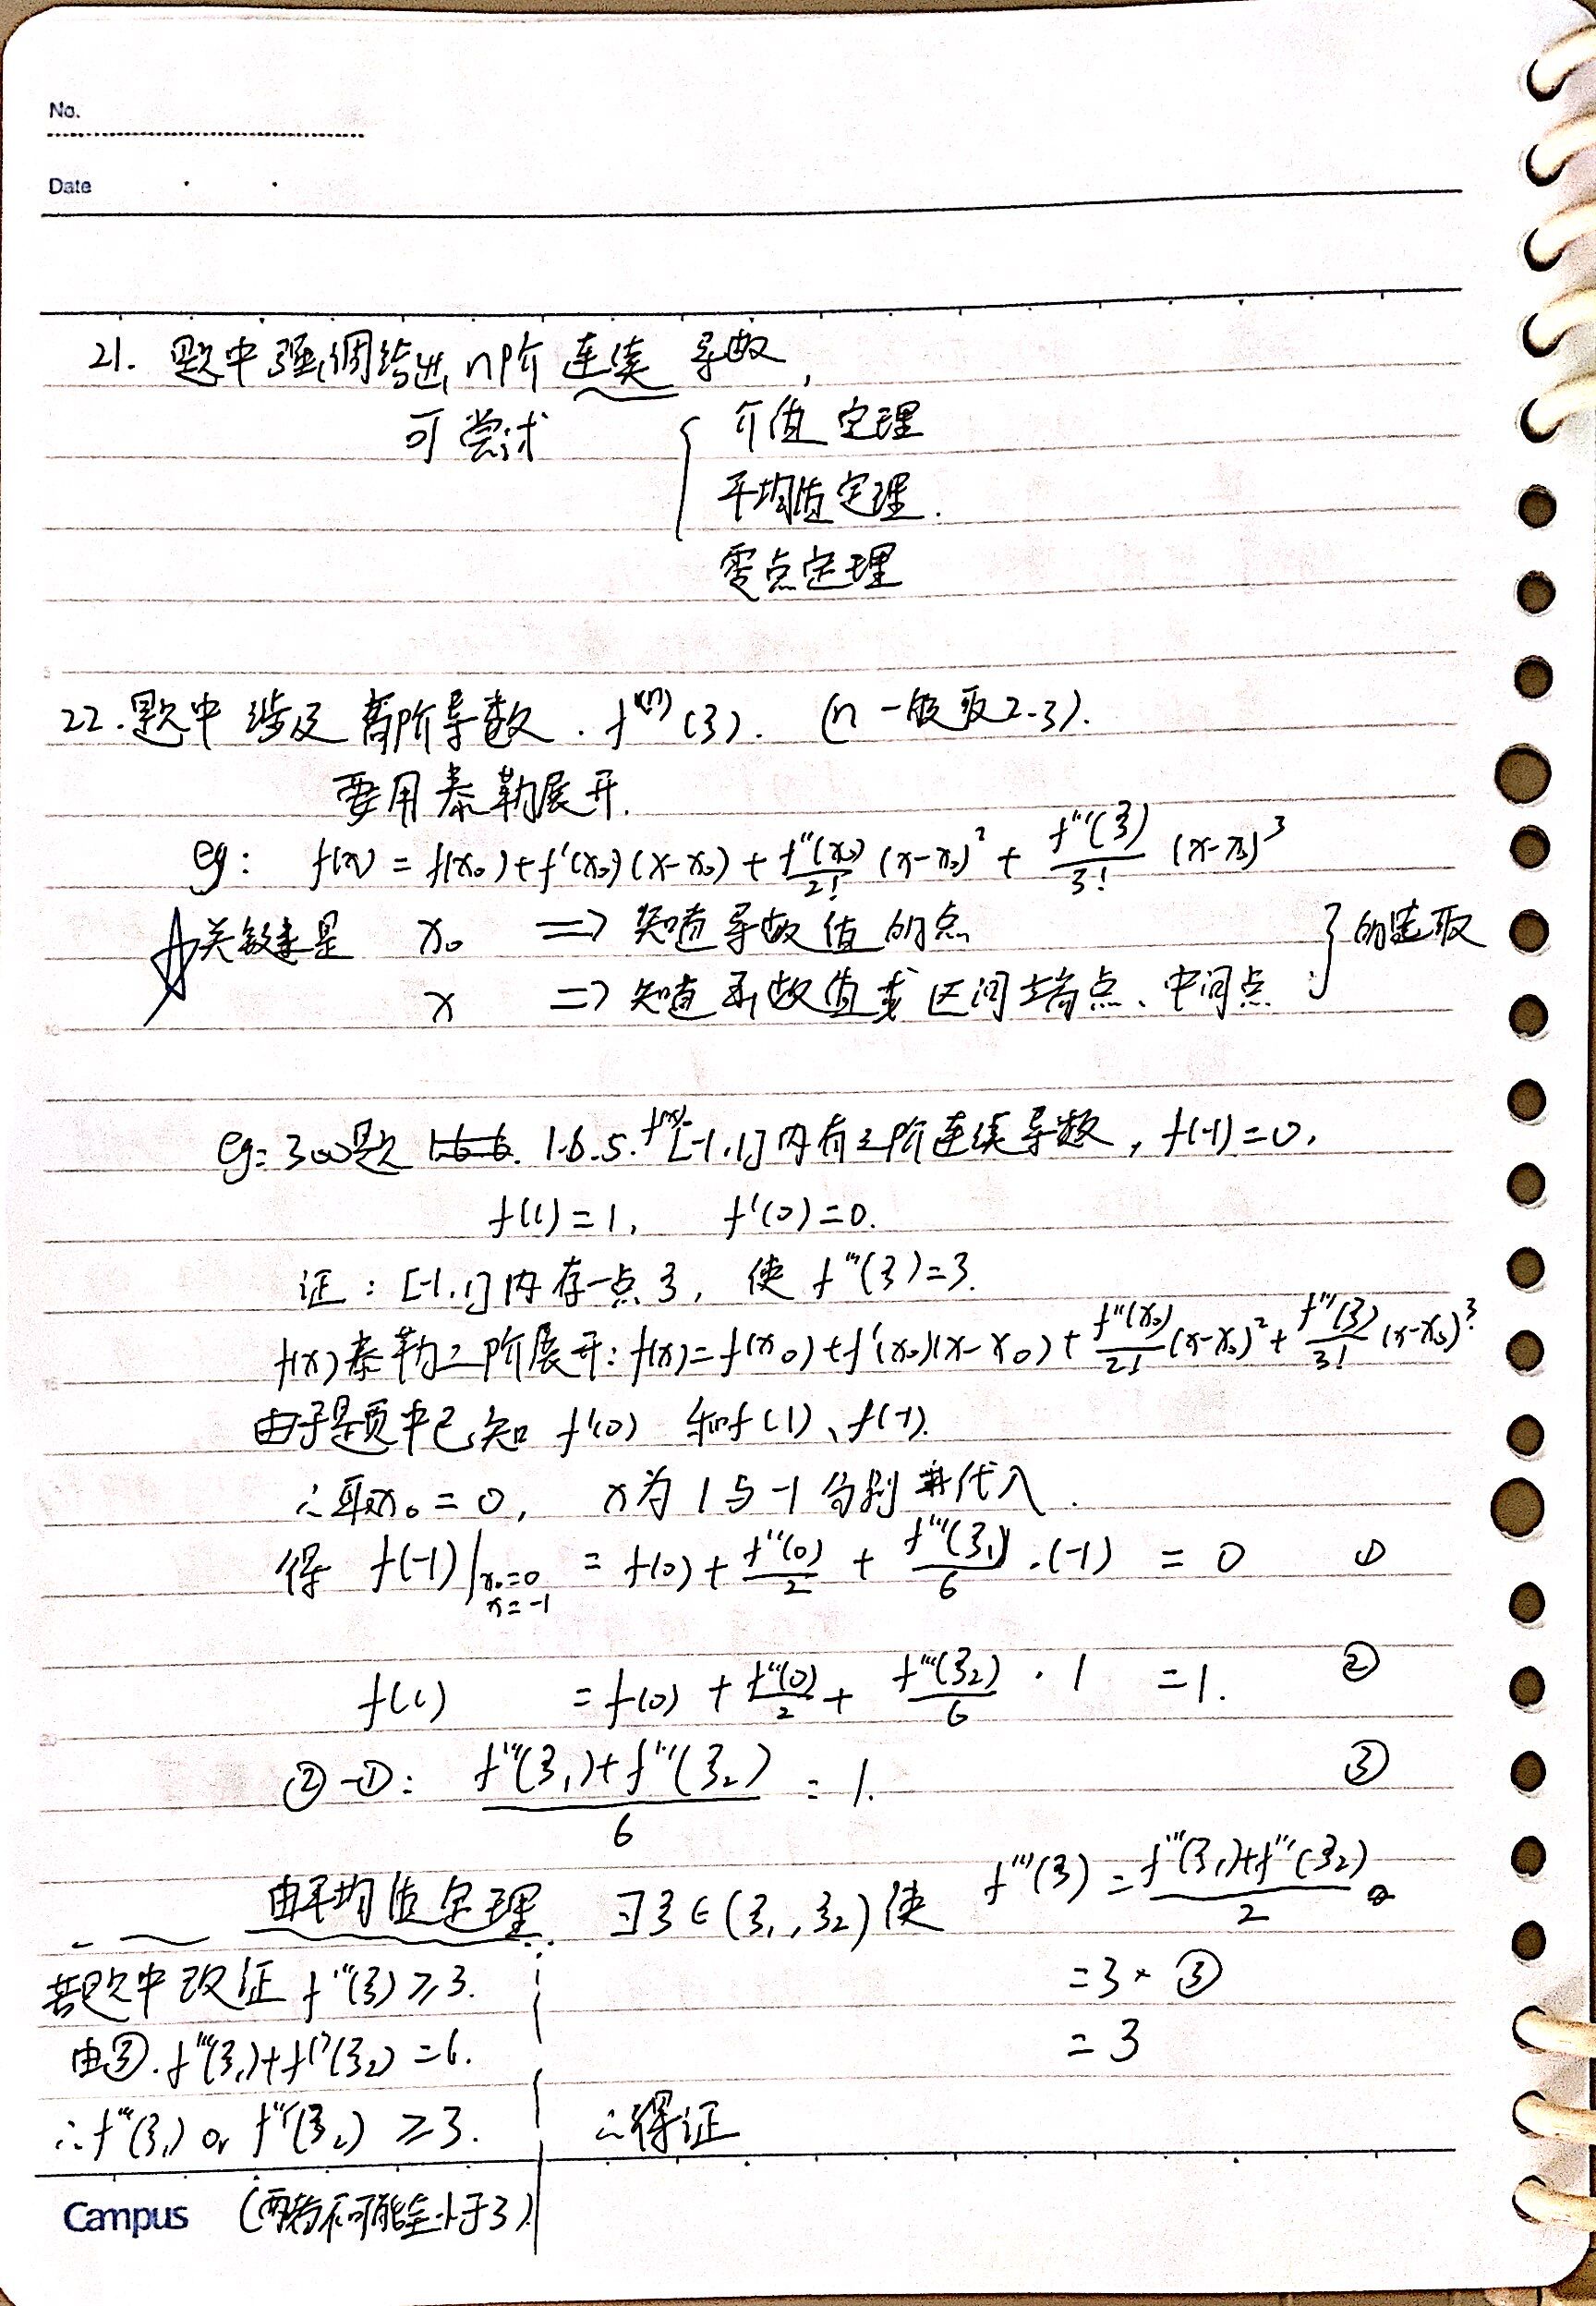 No.
Date
21. 题中强调给出 n阶 连续 导数,
可尝试 { 介值定理
平均值定理.
零点定理
22. 题中 涉及 高阶导数. f⁽ⁿ⁾(ξ). (n 一般取2.3).
要用泰勒展开.
eg: f(x) = f(x₀)+f'(x₀)(x-x₀) + f''(x₀)/2! (x-x₀)² + f'''(ξ)/3! (x-x₀)³
关键是 x₀ => 知道导数值的点 } 的选取
x => 知道函数值或区间端点、中间点
eg: 300题 1.6.5. f(x)[-1,1]内有三阶连续导数, f(-1)=0,
f(1)=1, f'(0)=0.
证: [-1,1]内存一点ξ, 使 f'''(ξ)=3.
f(x)泰勒二阶展开: f(x)=f(x₀)+f'(x₀)(x-x₀)+ f''(x₀)/2! (x-x₀)² + f'''(ξ)/3! (x-x₀)³
由于题中已知 f'(0) 和f(1)、f(-1).
∴取x₀=0, x为1与-1分别代入.
得 f(-1)|x₀=0 x=-1 = f(0)+ f''(0)/2 + f'''(ξ₁)/6 ·(-1) = 0 ①
f(1) = f(0) + f''(0)/2 + f'''(ξ₂)/6 · 1 = 1. ②
②-①: f'''(ξ₁)+f'''(ξ₂)/6 = 1. ③
由平均值定理 ∃ξ∈(ξ₁,ξ₂)使 f'''(ξ) = f'''(ξ₁)+f'''(ξ₂)/2
若题中改证 f'''(ξ)≥3. =3×③
由③. f'''(ξ₁)+f'''(ξ₂)=6. =3
∴f'''(ξ₁) or f'''(ξ₂) ≥3. ∴得证
Campus (两者不可能全小于3)